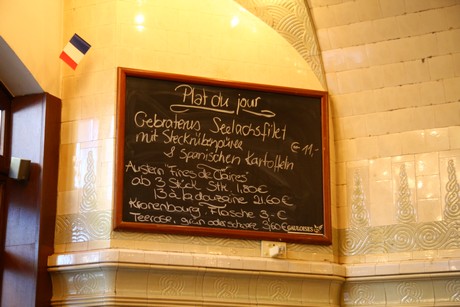 Plat du jour
Gebratenes Seelachsfilet
mit Steckrübenpüree € 11,-
& Spanischen Kartoffeln
Austern "Fines de Claires"
ab 3 Stück Stk. 1,80€
13 à la douzaine 21,60€
Kronenbourg Flasche 3,-€
Teerose, grün oder schwarz 3,60€
GAULOISES